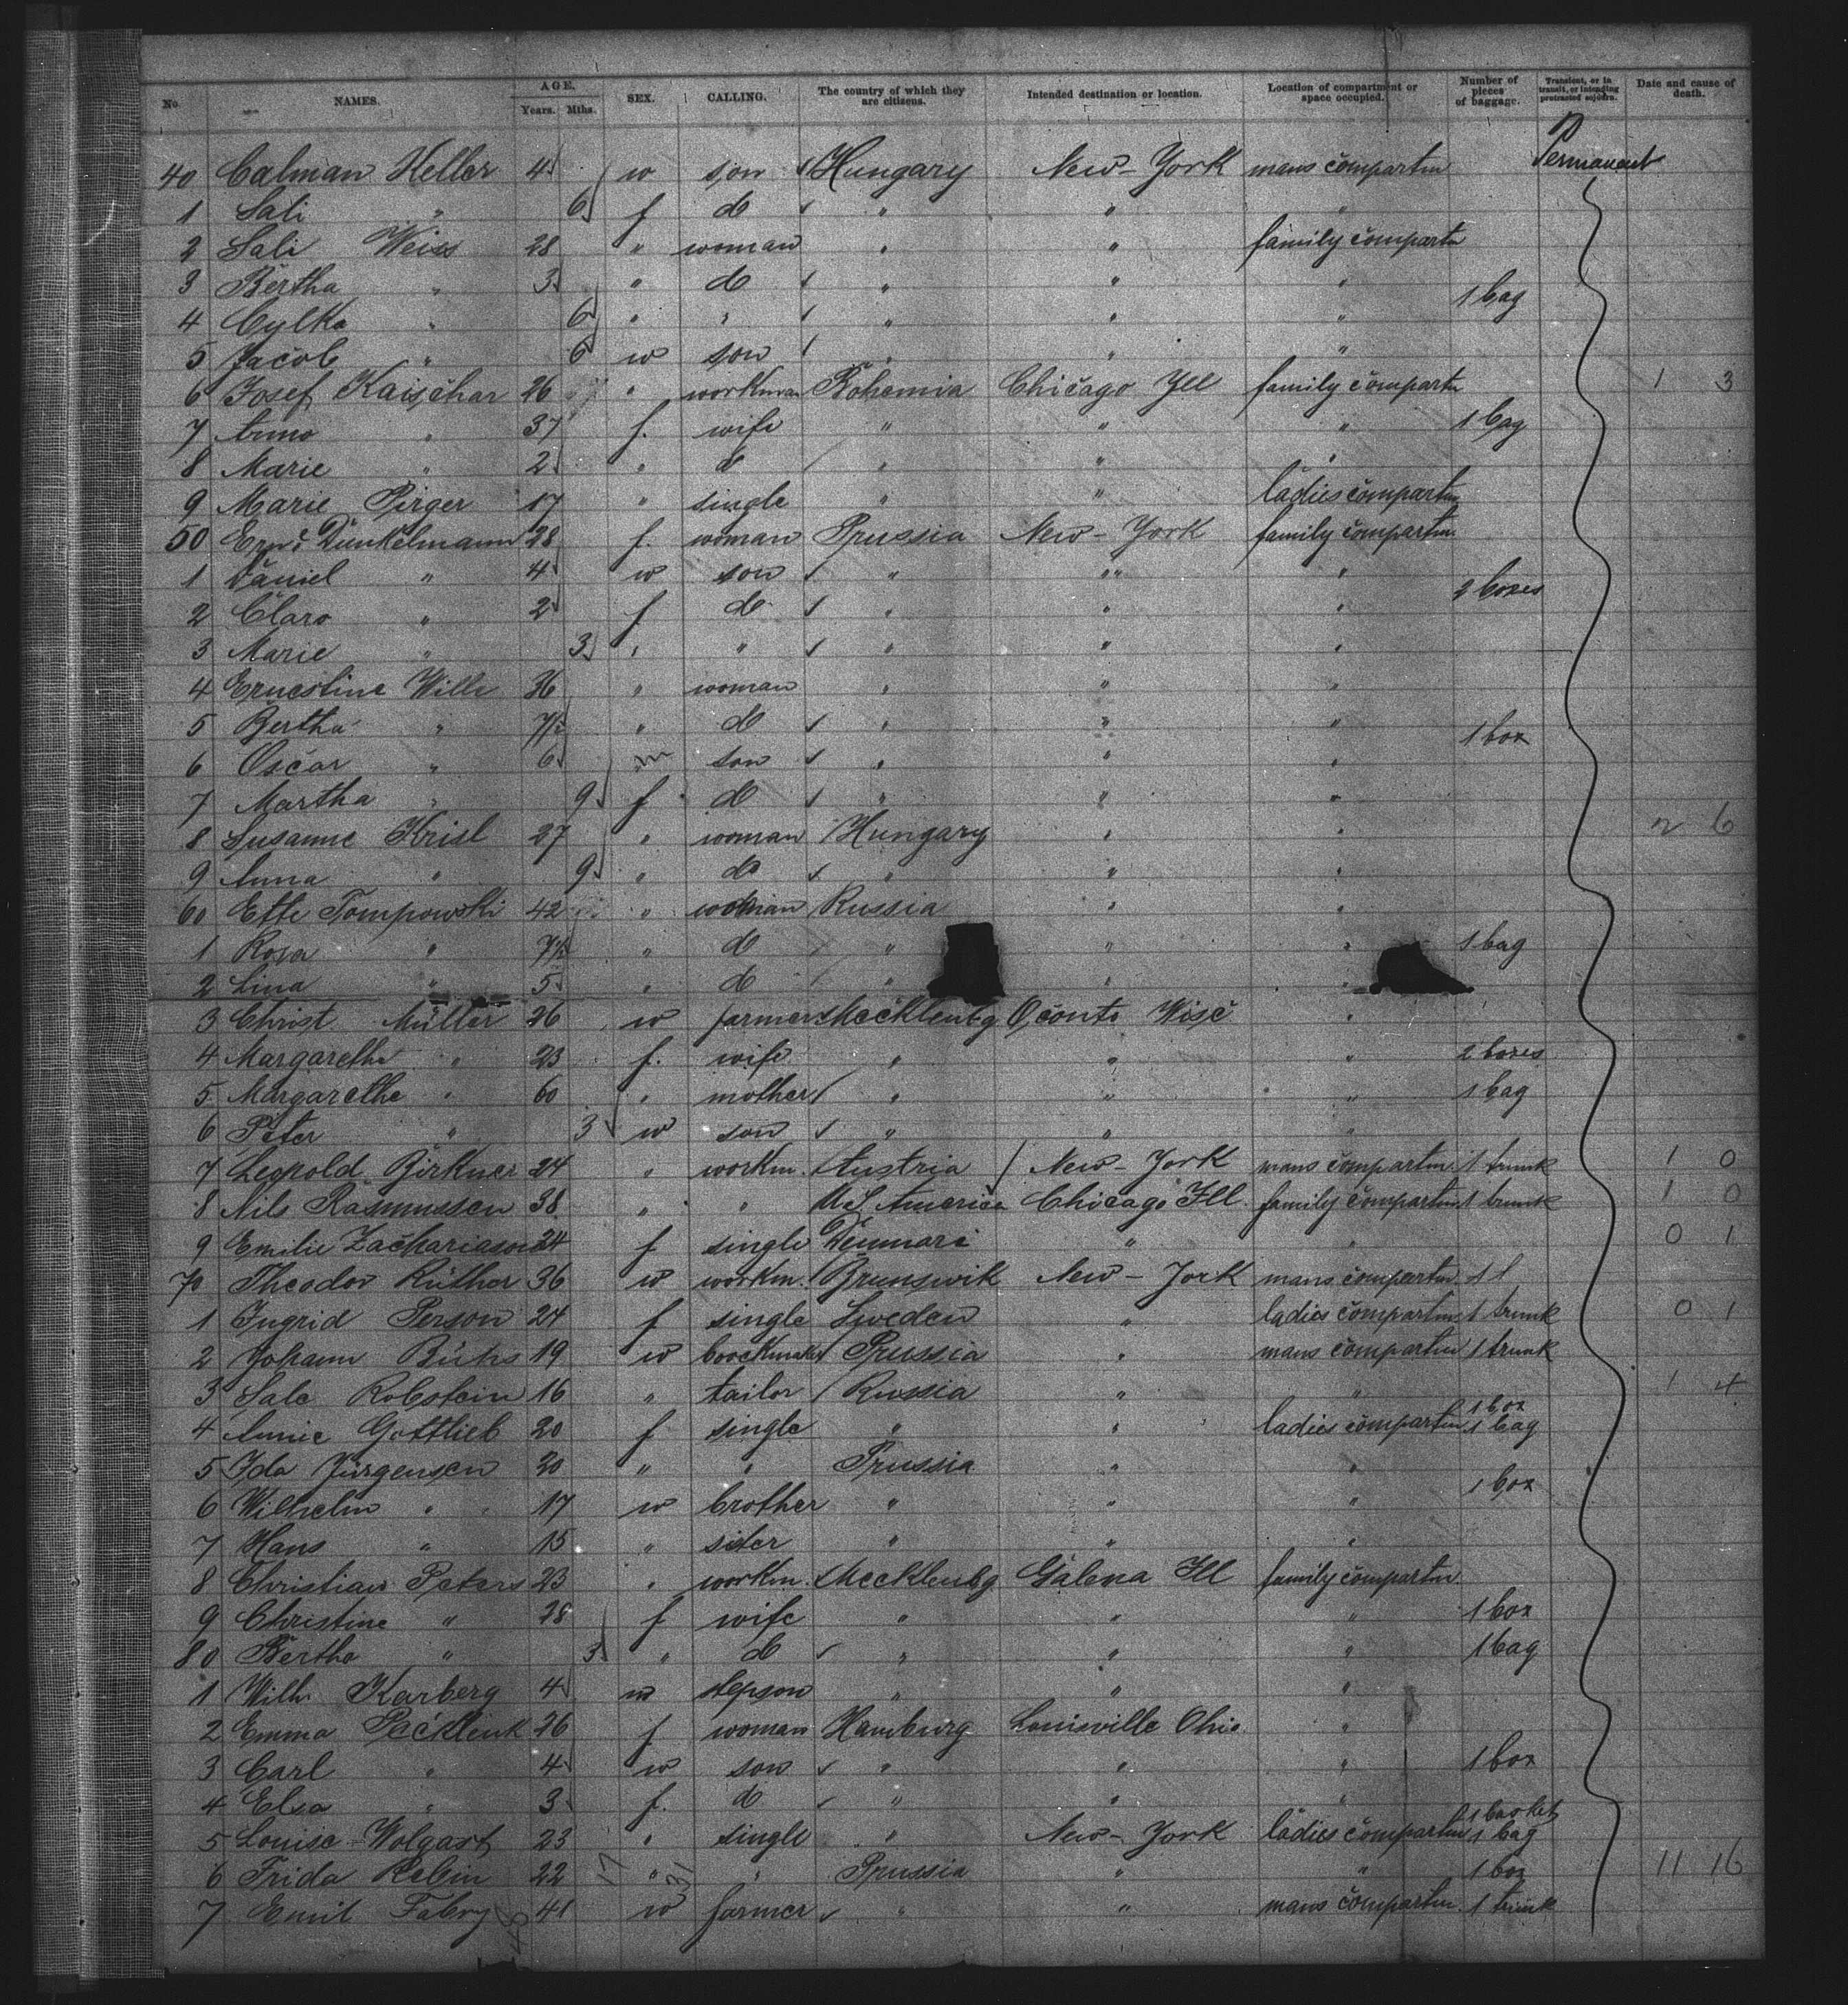 No. NAMES. AGE. Years. Mths. SEX. CALLING. The country of which they are citizens. Intended destination or location. Location of compartment or space occupied. Number of pieces of baggage. Transient, or in transit, or intending protracted sojourn. Date and cause of death.
40 Calman Heller 4 w son Hungary New-York mans compartm Permanent
1 Sali " 6 f d " " "
2 Sali Weiss 28 " woman " " family compartm
3 Bertha " 3 " d " " " 1 bag
4 Cylka " 6 " " " " "
5 Jacob " 6 w son " " "
6 Josef Kaischar 26 " workman Bohemia Chicago Ill family compartm 1 3
7 Anno " 37 f. wife " " " 1 bag
8 Marie " 2 " d " " "
9 Marie Pirger 17 " single " " ladies compartm
50 Ern: Dunkelmann 28 f. woman Prussia New-York family compartm
1 Daniel " 4 w son " " " 2 boxes
2 Clara " 2 f d " " "
3 Marie " 3 " " " " "
4 Ernestine Wille 36 " woman " " "
5 Bertha " 7/2 " d " " "
6 Oscar " 6 m son " " " 1 box
7 Martha " 9 f d " " "
8 Susanne Krisl 27 " woman Hungary " " 2 6
9 Anna " 9 " d " " "
60 Ette Tompowski 42 " woman Russia " "
1 Rosa " 7/2 " d " " " 1 bag
2 Lina " 5 " d " " "
3 Christ Müller 26 w farmer Mecklenbg Oconto Wisc "
4 Margarethe " 23 f. wife " " " 2 boxes
5 Margarethe " 60 " mother " " " 1 bag
6 Peter " 3 w son " " "
7 Leopold Birkner 24 " workm. Austria New-York mans compartm. 1 trunk 1 0
8 Nils Rasmussen 38 " " U.S. America Chicago Ill. family compartm. 1 trunk 1 0
9 Emilie Zachariason 24 f single Denmark " " 0 1
70 Theodor Rüther 36 w workm. Brunswik New-York mans compartm. 1
1 Ingrid Person 24 f single Sweden " ladies compartm 1 trunk 0 1
2 Johann Bühs 19 w boockmaker Prussia " mans compartm 1 trunk
3 Sale Robstein 16 " tailor Russia " " 1 4
4 Annie Gottlieb 20 f single " " ladies compartm 1 box 1 bag
5 Ida Jürgensen 20 " " Prussia " "
6 Wilhelm " 17 w brother " " " 1 box
7 Hans " 15 " sister " " "
8 Christian Peters 23 " workm. Mecklenbg Galena Ill family compartm.
9 Christine " 28 f wife " " " 1 box
80 Bertha " 3 " d " " " 1 bag
1 Wilh. Karberg 4 m stepson " " "
2 Emma Packlenk 26 f woman Hamburg Louisville Ohio. "
3 Carl " 4 w son " " " 1 box
4 Elsa " 3 f. d " " "
5 Louise Wolgast 23 " single " New-York ladies compartm 1 basket 1 bag
6 Frida Rebin 22 " " Prussia " " 1 box 11 16
7 Emil Fabry 41 w farmer " " mans compartm. 1 trunk